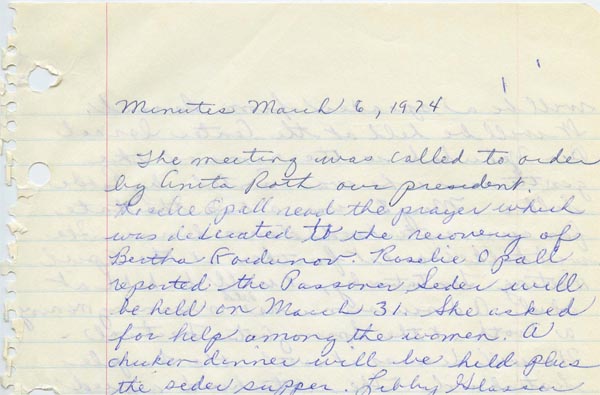 Minutes March 6, 1974
The meeting was called to order
by Anita Roth our president.
Roselie Opall read the prayer which
was dedicated to the recovery of
Bertha Roedunov. Roselie Opall
reported the Passover Seder will
be held on March 31. She asked
for help among the women. A
chicken dinner will be held plus
the seder supper. Libby Glasser